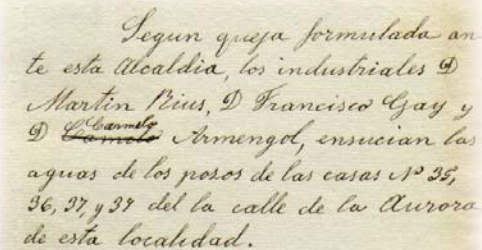 Segun queja formulada an-
te esta Alcaldia, los industriales D
Martin Rius, D Francisco Gay y
D Carmelo Armengol, ensucian las
aguas de los posos de las casas Nº 35,
36, 37, y 39 del la calle de la Aurora
de esta localidad.